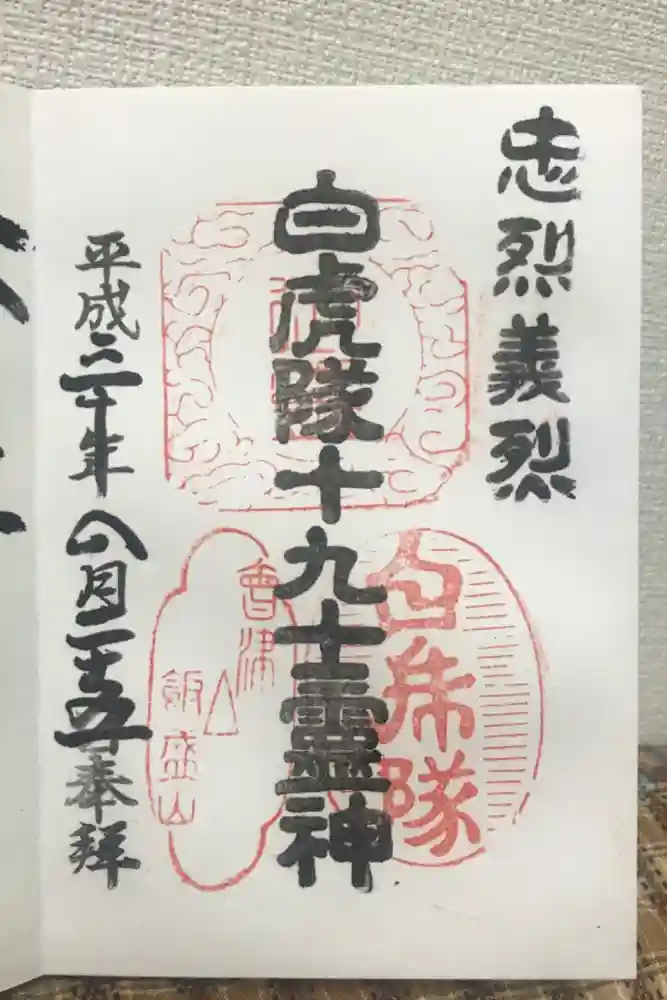 忠烈義烈
白虎隊十九士霊神
平成三十年八月二十五日奉拝
白虎隊
會津
飯盛山